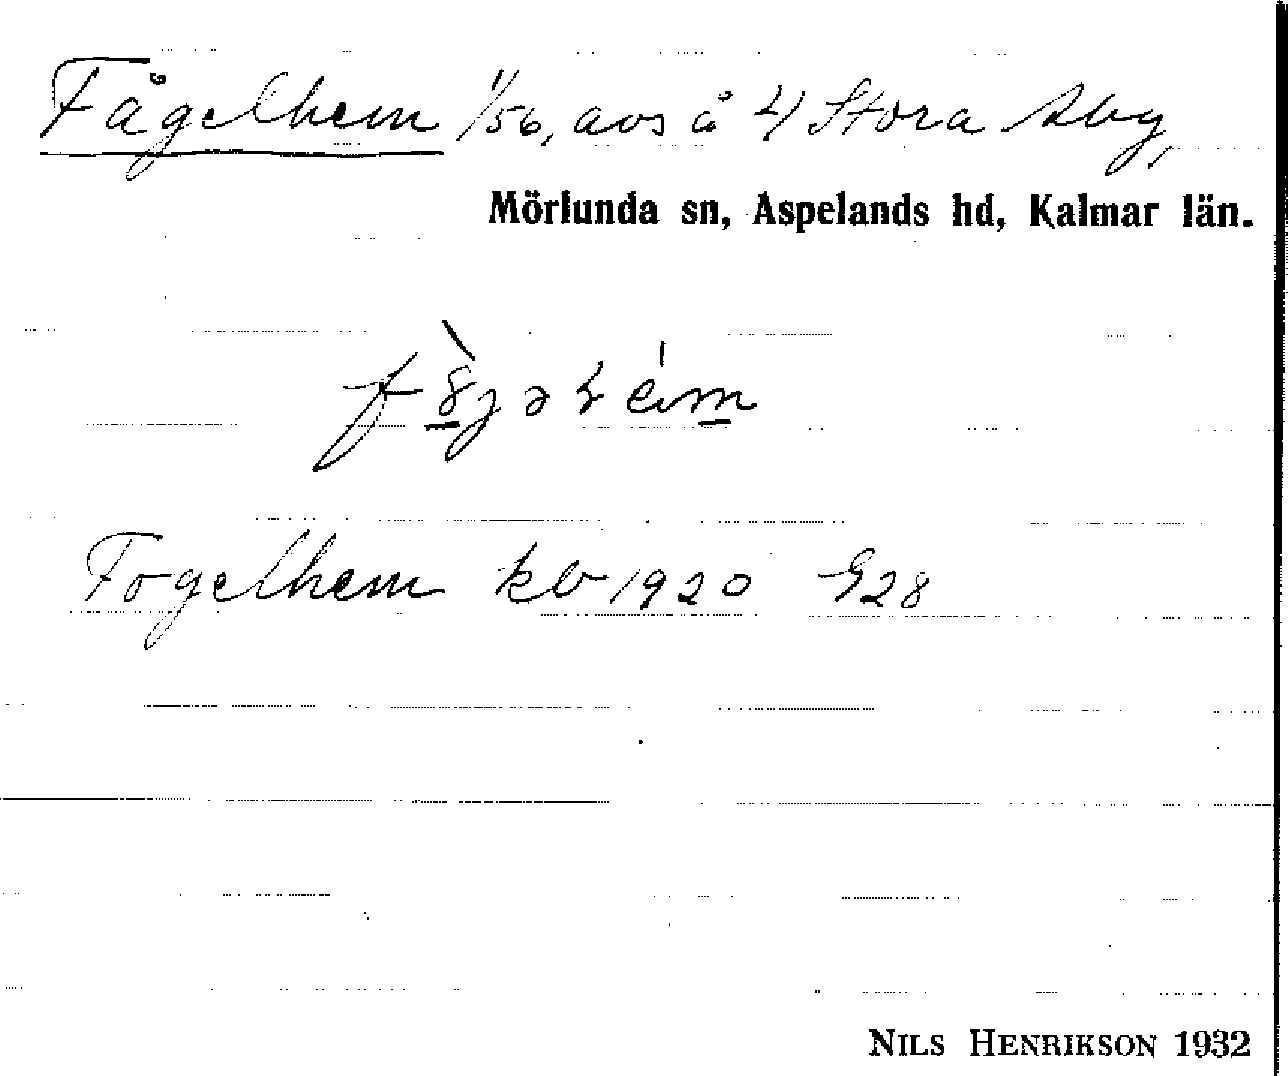 Fågelhem 1/56, avs å 4/ Stora Aby,
Mörlunda sn, Aspelands hd, Kalmar län.
Fogelhem kb 1920 G28
NILS HENRIKSON 1932